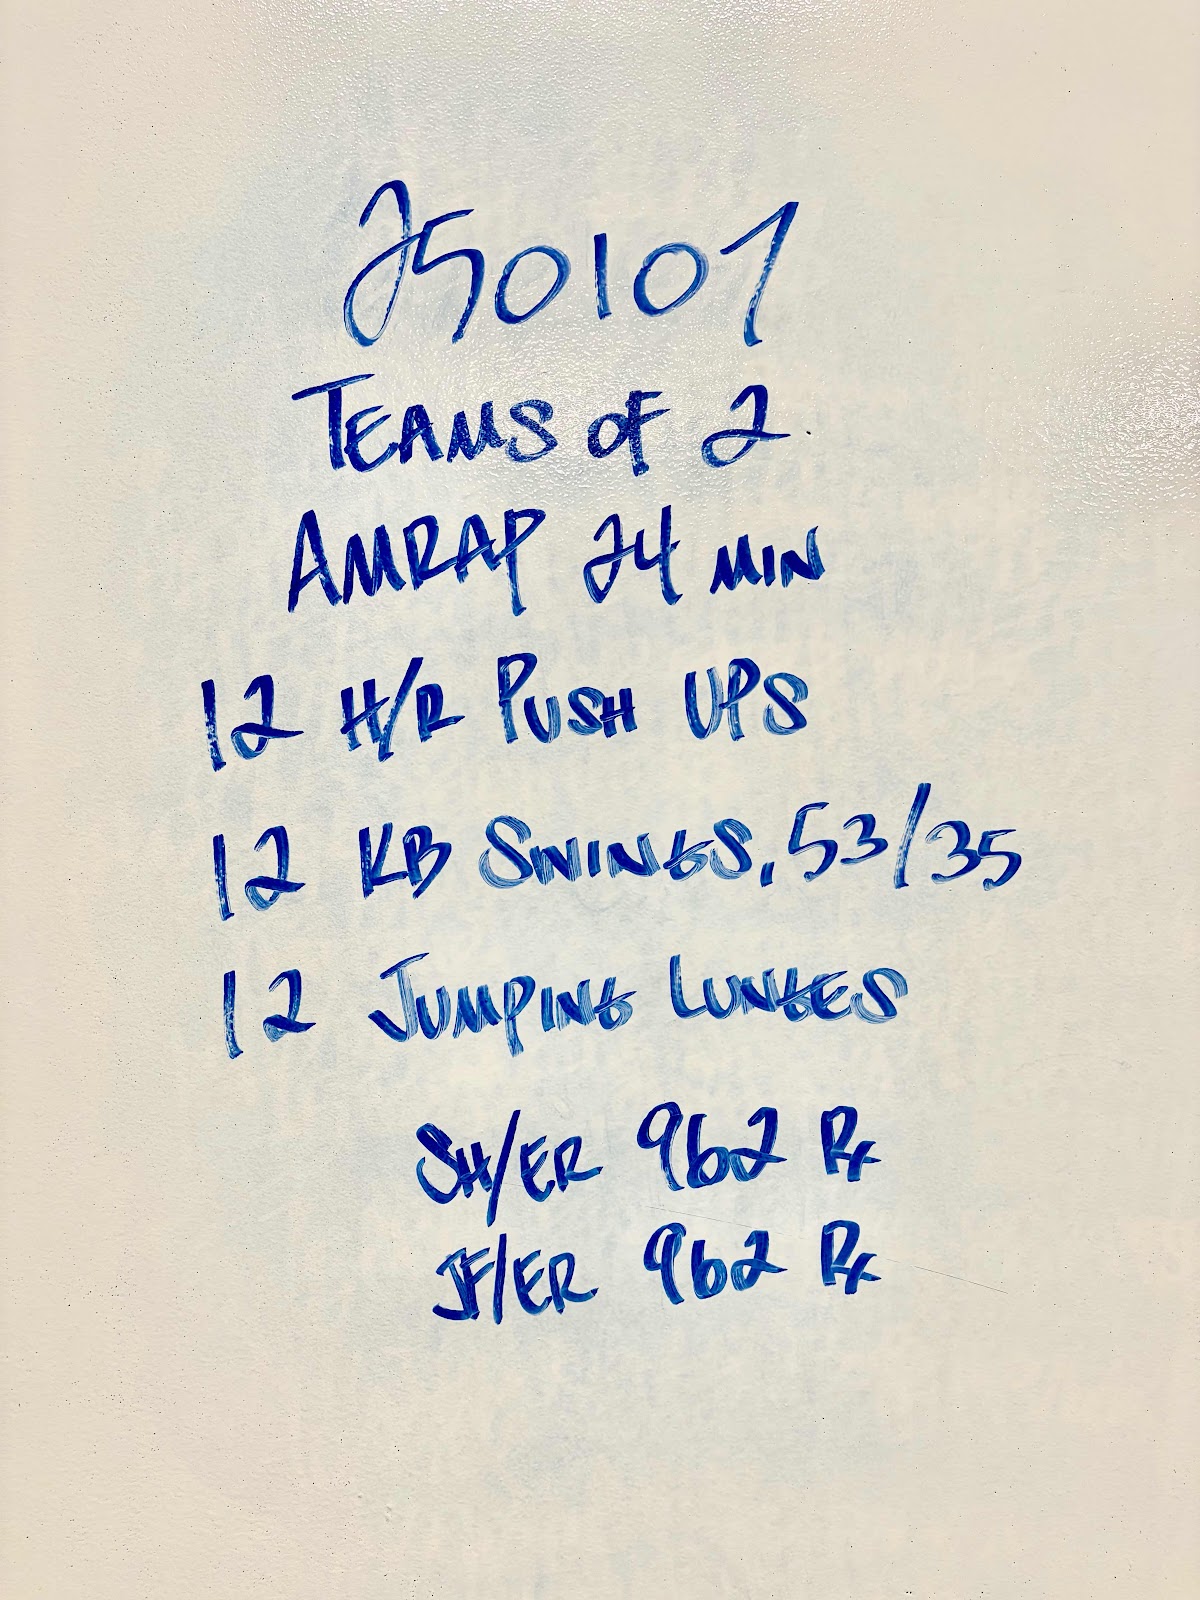 250107
TEAMS OF 2
AMRAP 24 MIN
12 H/R PUSH UPS
12 KB SWINGS, 53/35
12 JUMPING LUNGES
SH/ER 962 Rx
JF/ER 962 Rx